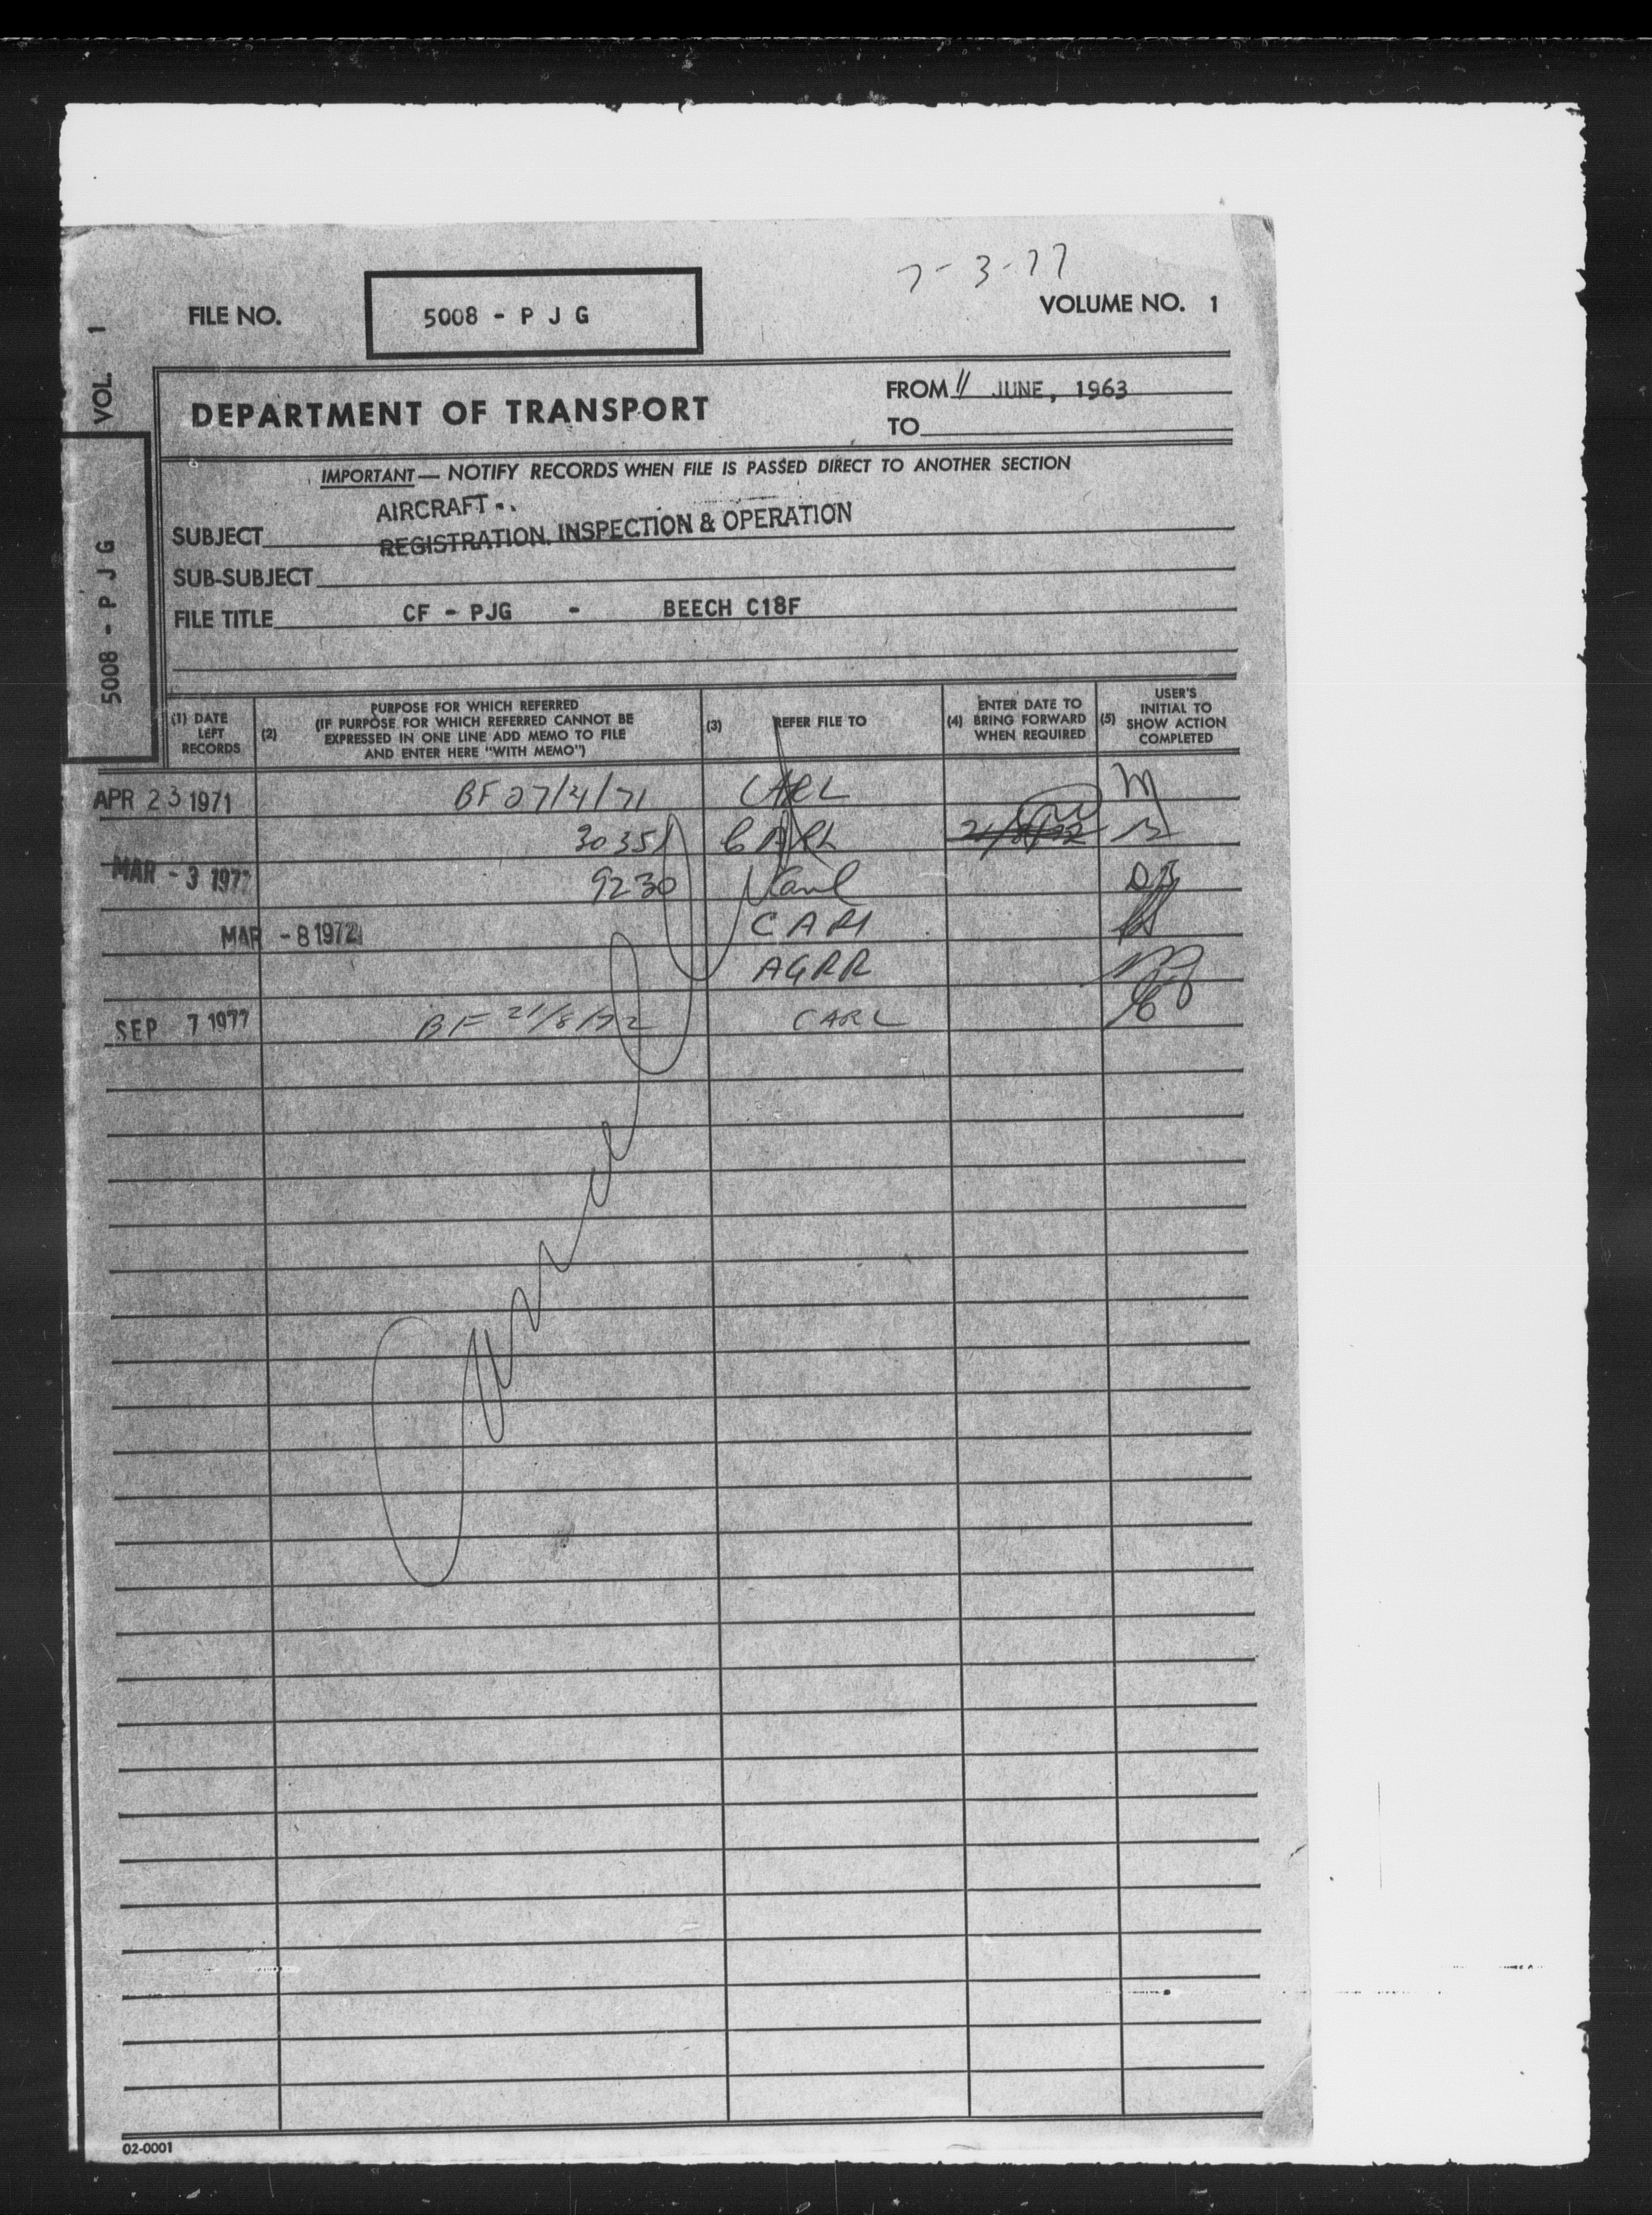 7-3-77
FILE NO. 5008 - P J G
VOLUME NO. 1
VOL. 1
5008 - P J G
DEPARTMENT OF TRANSPORT
FROM 11 JUNE, 1963
TO
IMPORTANT — NOTIFY RECORDS WHEN FILE IS PASSED DIRECT TO ANOTHER SECTION
AIRCRAFT -.
SUBJECT REGISTRATION, INSPECTION & OPERATION
SUB-SUBJECT
FILE TITLE CF - PJG - BEECH C18F
(1) DATE LEFT RECORDS
(2) PURPOSE FOR WHICH REFERRED
(IF PURPOSE FOR WHICH REFERRED CANNOT BE
EXPRESSED IN ONE LINE ADD MEMO TO FILE
AND ENTER HERE "WITH MEMO")
(3) REFER FILE TO
(4) ENTER DATE TO BRING FORWARD WHEN REQUIRED
(5) USER'S INITIAL TO SHOW ACTION COMPLETED
APR 23 1971 BF 27/4/71 CARL M
30351 CARL
MAR - 3 197 9230 Carl DB
MAR - 8 1972 CARL
AGRR
SEP 7 1977 BF 21/8/72 CARL
02-0001